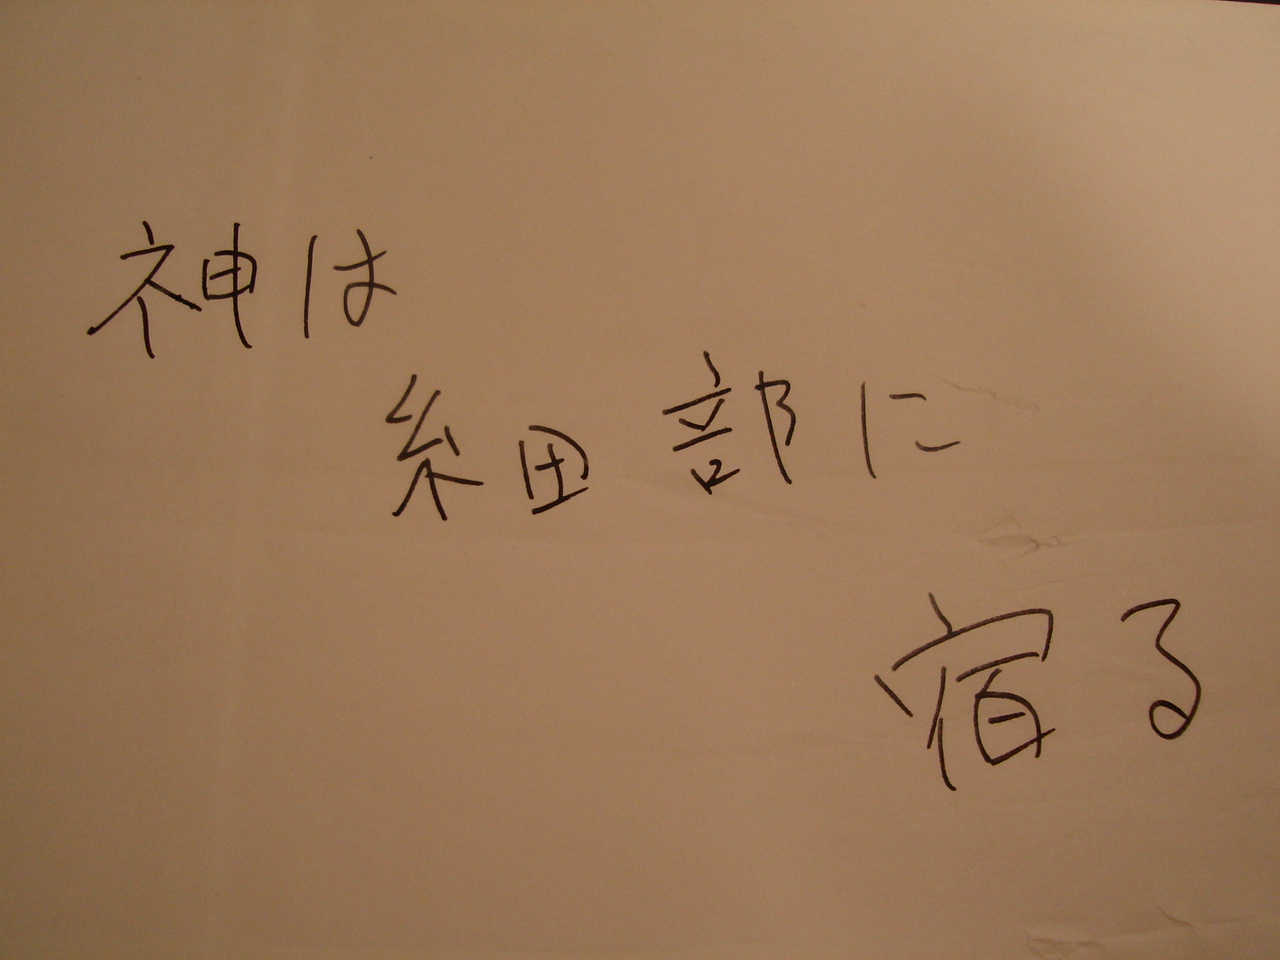 神は
細部に
宿る